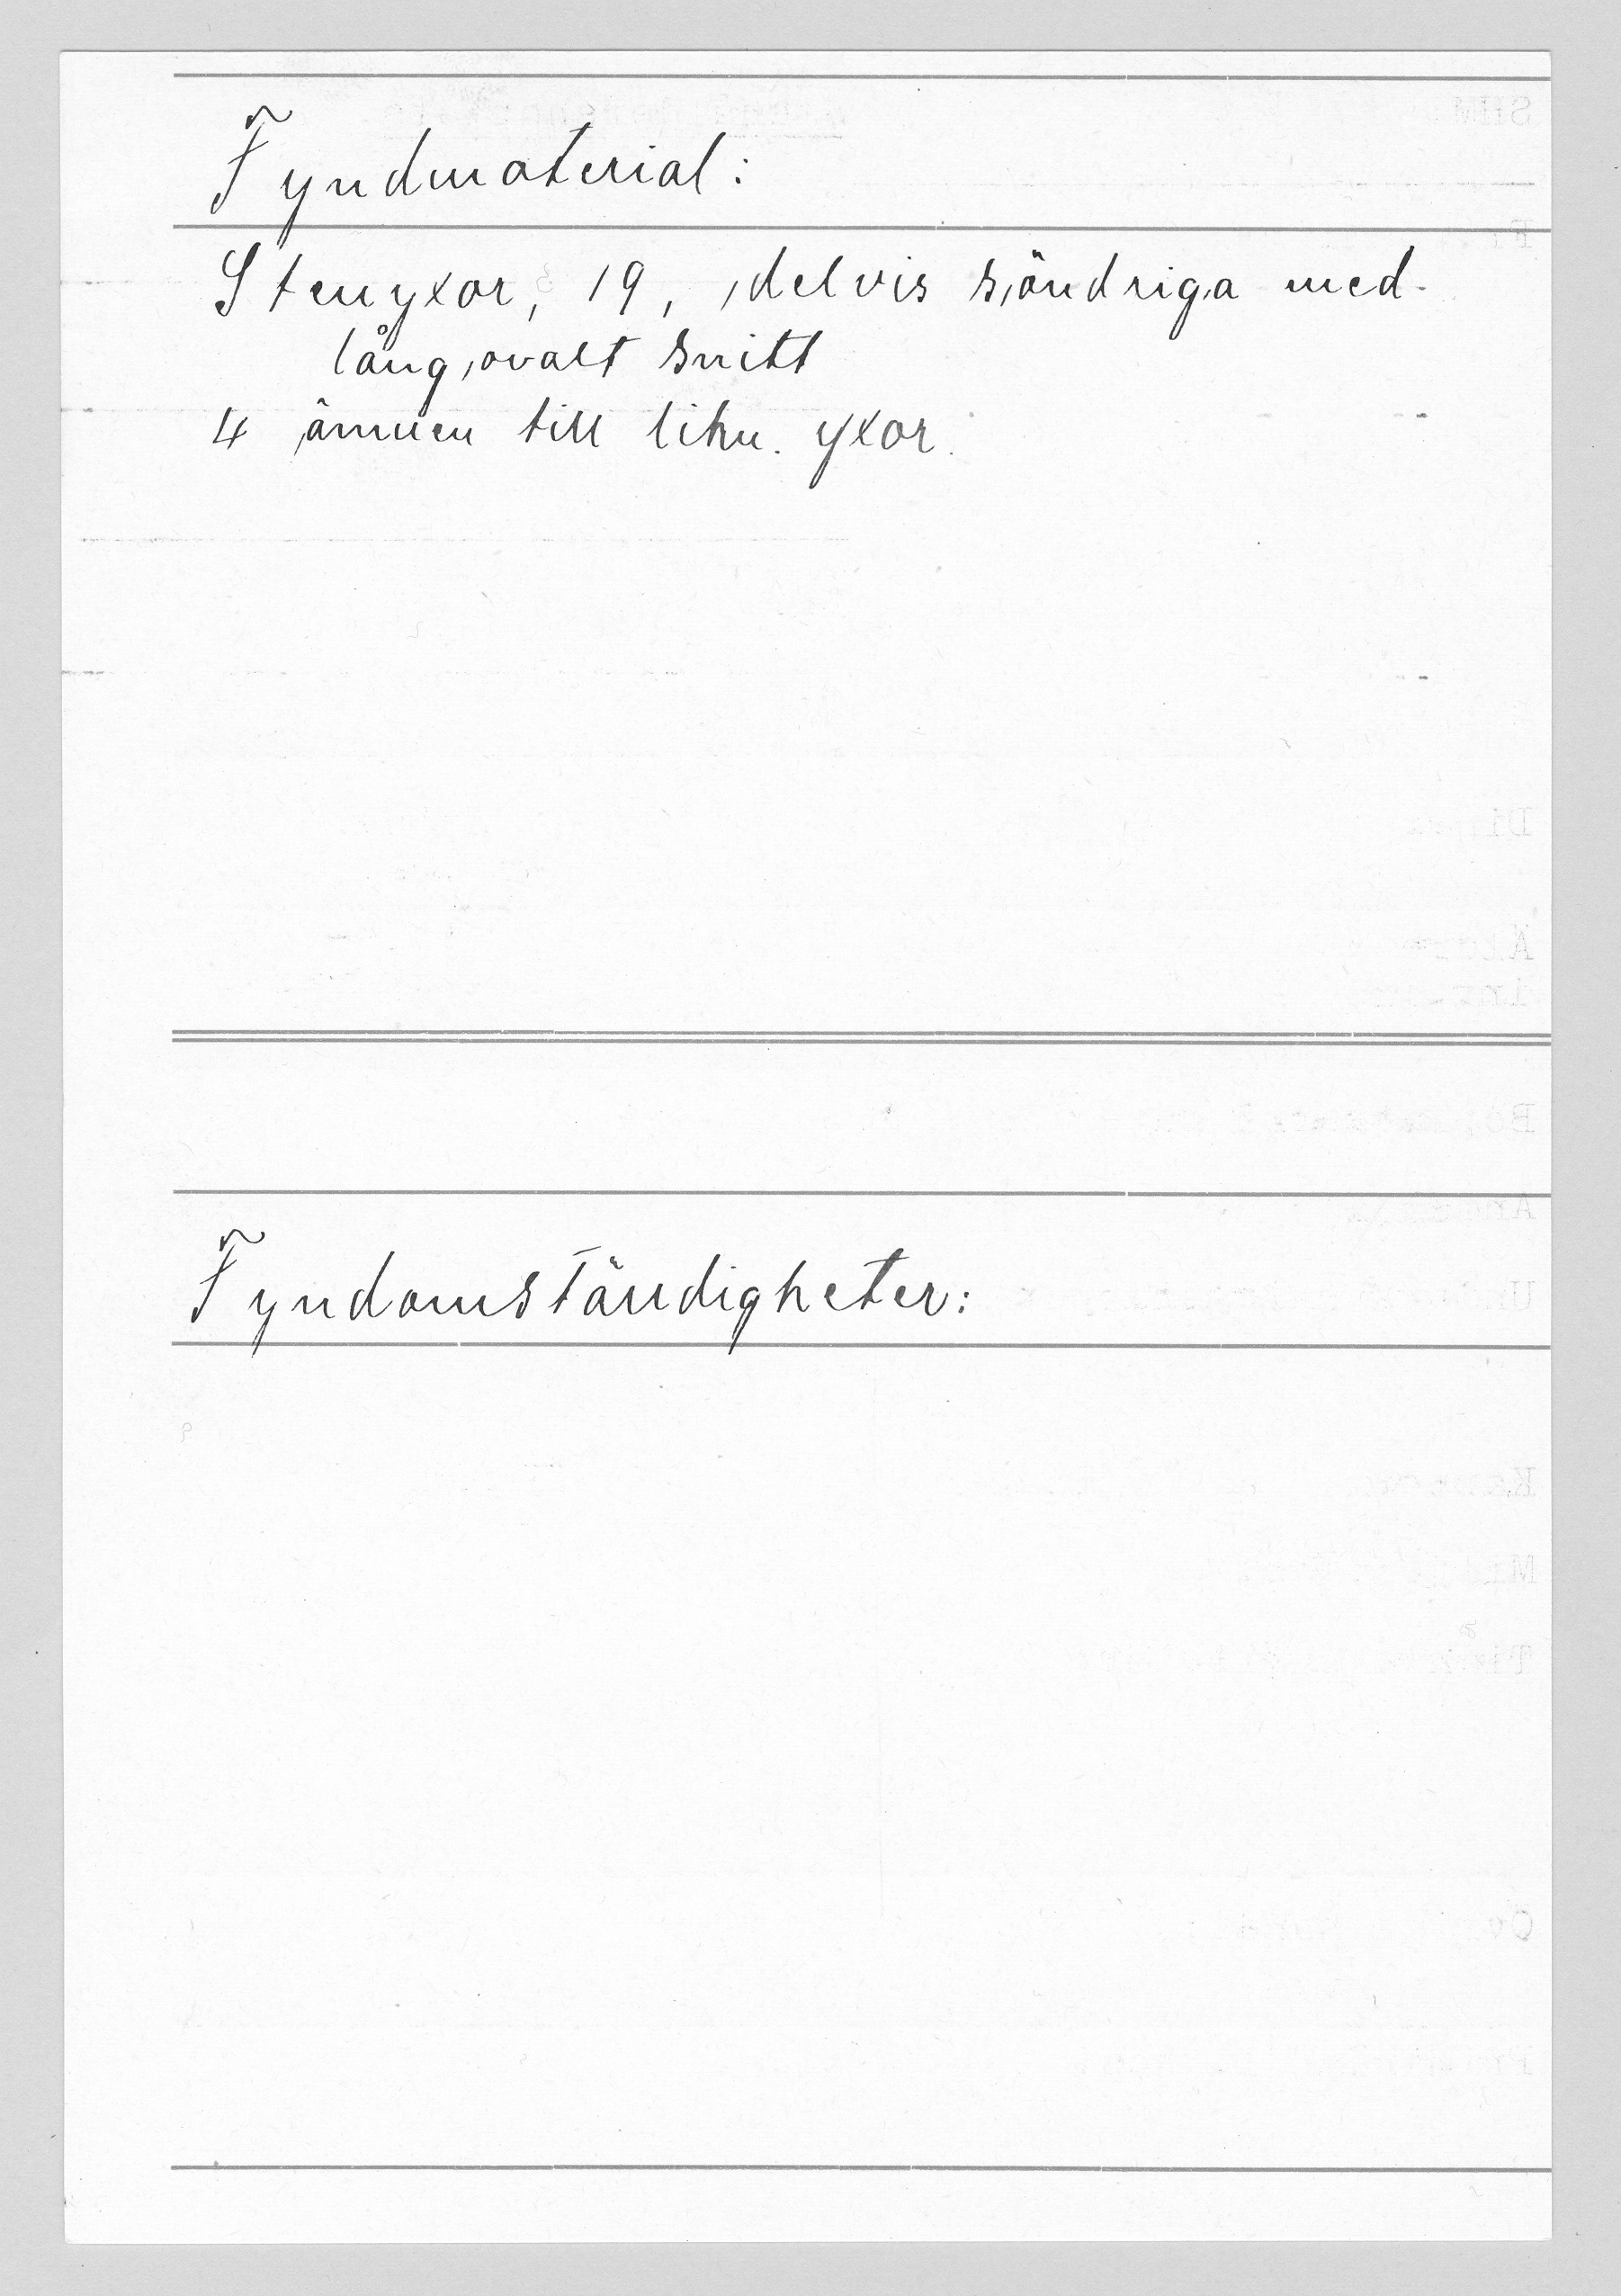 Fyndmaterial:
Stenyxor, 19, delvis söndriga med
långovalt snitt
4 ämnen till likn. yxor.
Fyndomständigheter: